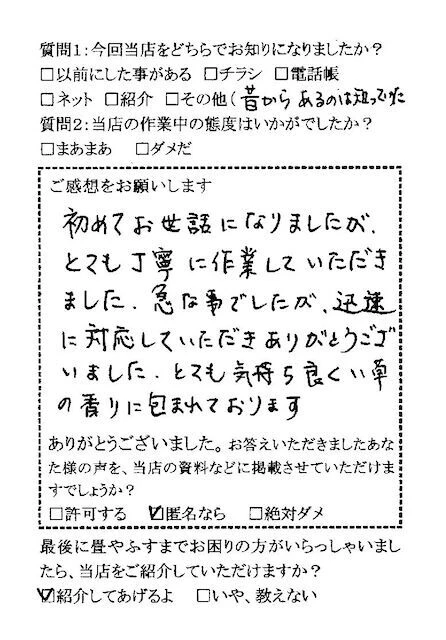 質問1:今回当店をどちらでお知りになりましたか?
□以前にした事がある □チラシ □電話帳
□ネット □紹介 □その他(昔からあるのは知っていた
質問2:当店の作業中の態度はいかがでしたか?
□まあまあ □ダメだ
ご感想をお願いします
初めてお世話になりましたが、
とても丁寧に作業していただき
ました.急な事でしたが、迅速
に対応していただきありがとうござ
いました.とても気持ち良くい草
の香りに包まれております
ありがとうございました。お答えいただきましたあな
た様の声を、当店の資料などに掲載させていただけま
すでしょうか?
□許可する ☑匿名なら □絶対ダメ
最後に畳やふすまでお困りの方がいらっしゃいまし
たら、当店をご紹介していただけますか?
☑紹介してあげるよ □いや、教えない